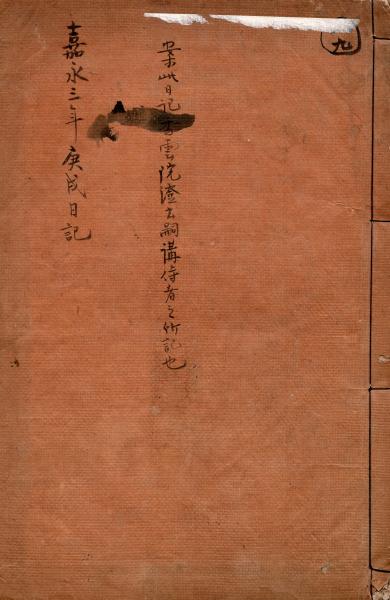 九
案此日記香雲院澄玄嗣講侍者之所記也
嘉永三年庚戌日記